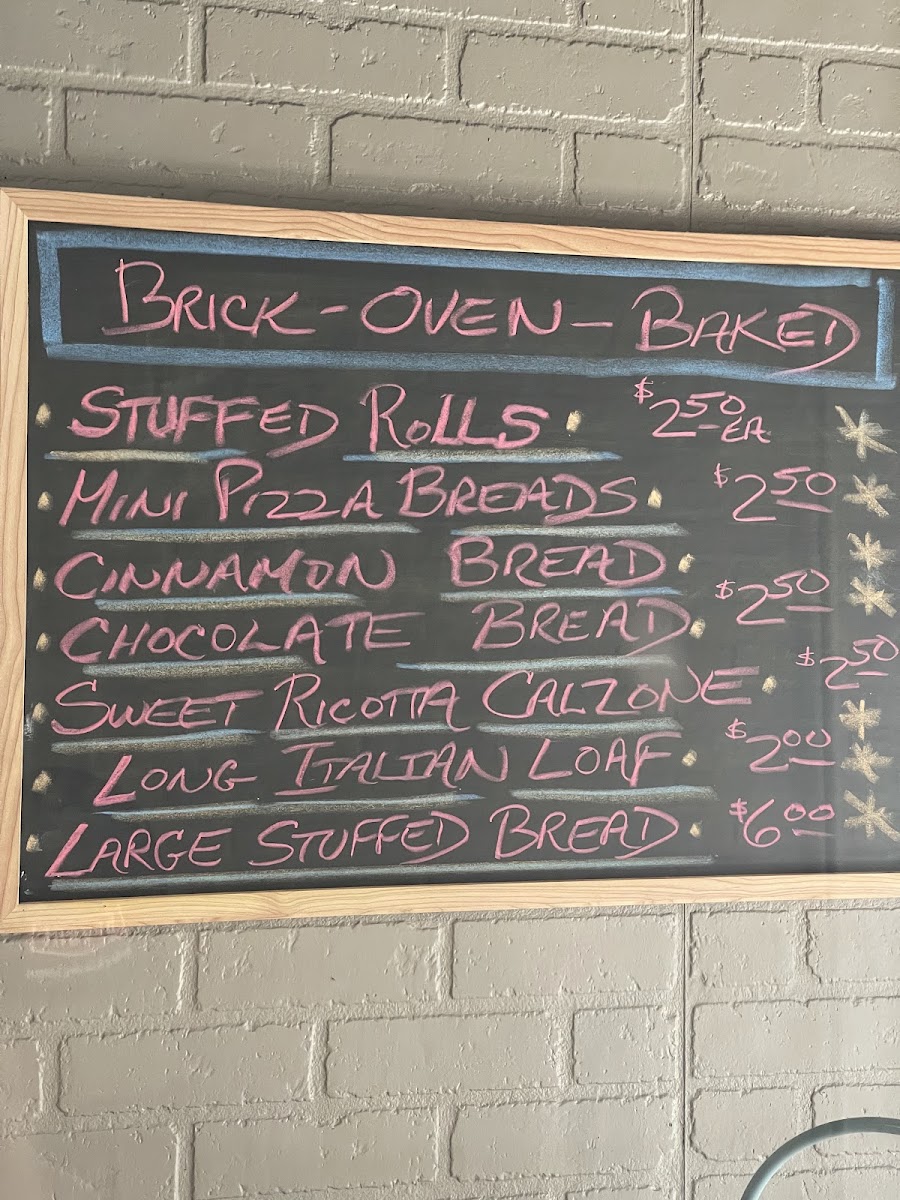 BRICK-OVEN-BAKED
STUFFED ROLLS $2.50 EA.
MINI PIZZA BREADS $2.50
CINNAMON BREAD
CHOCOLATE BREAD $2.50
SWEET RICOTTA CALZONE $2.50
LONG ITALIAN LOAF $2.00
LARGE STUFFED BREAD $6.00